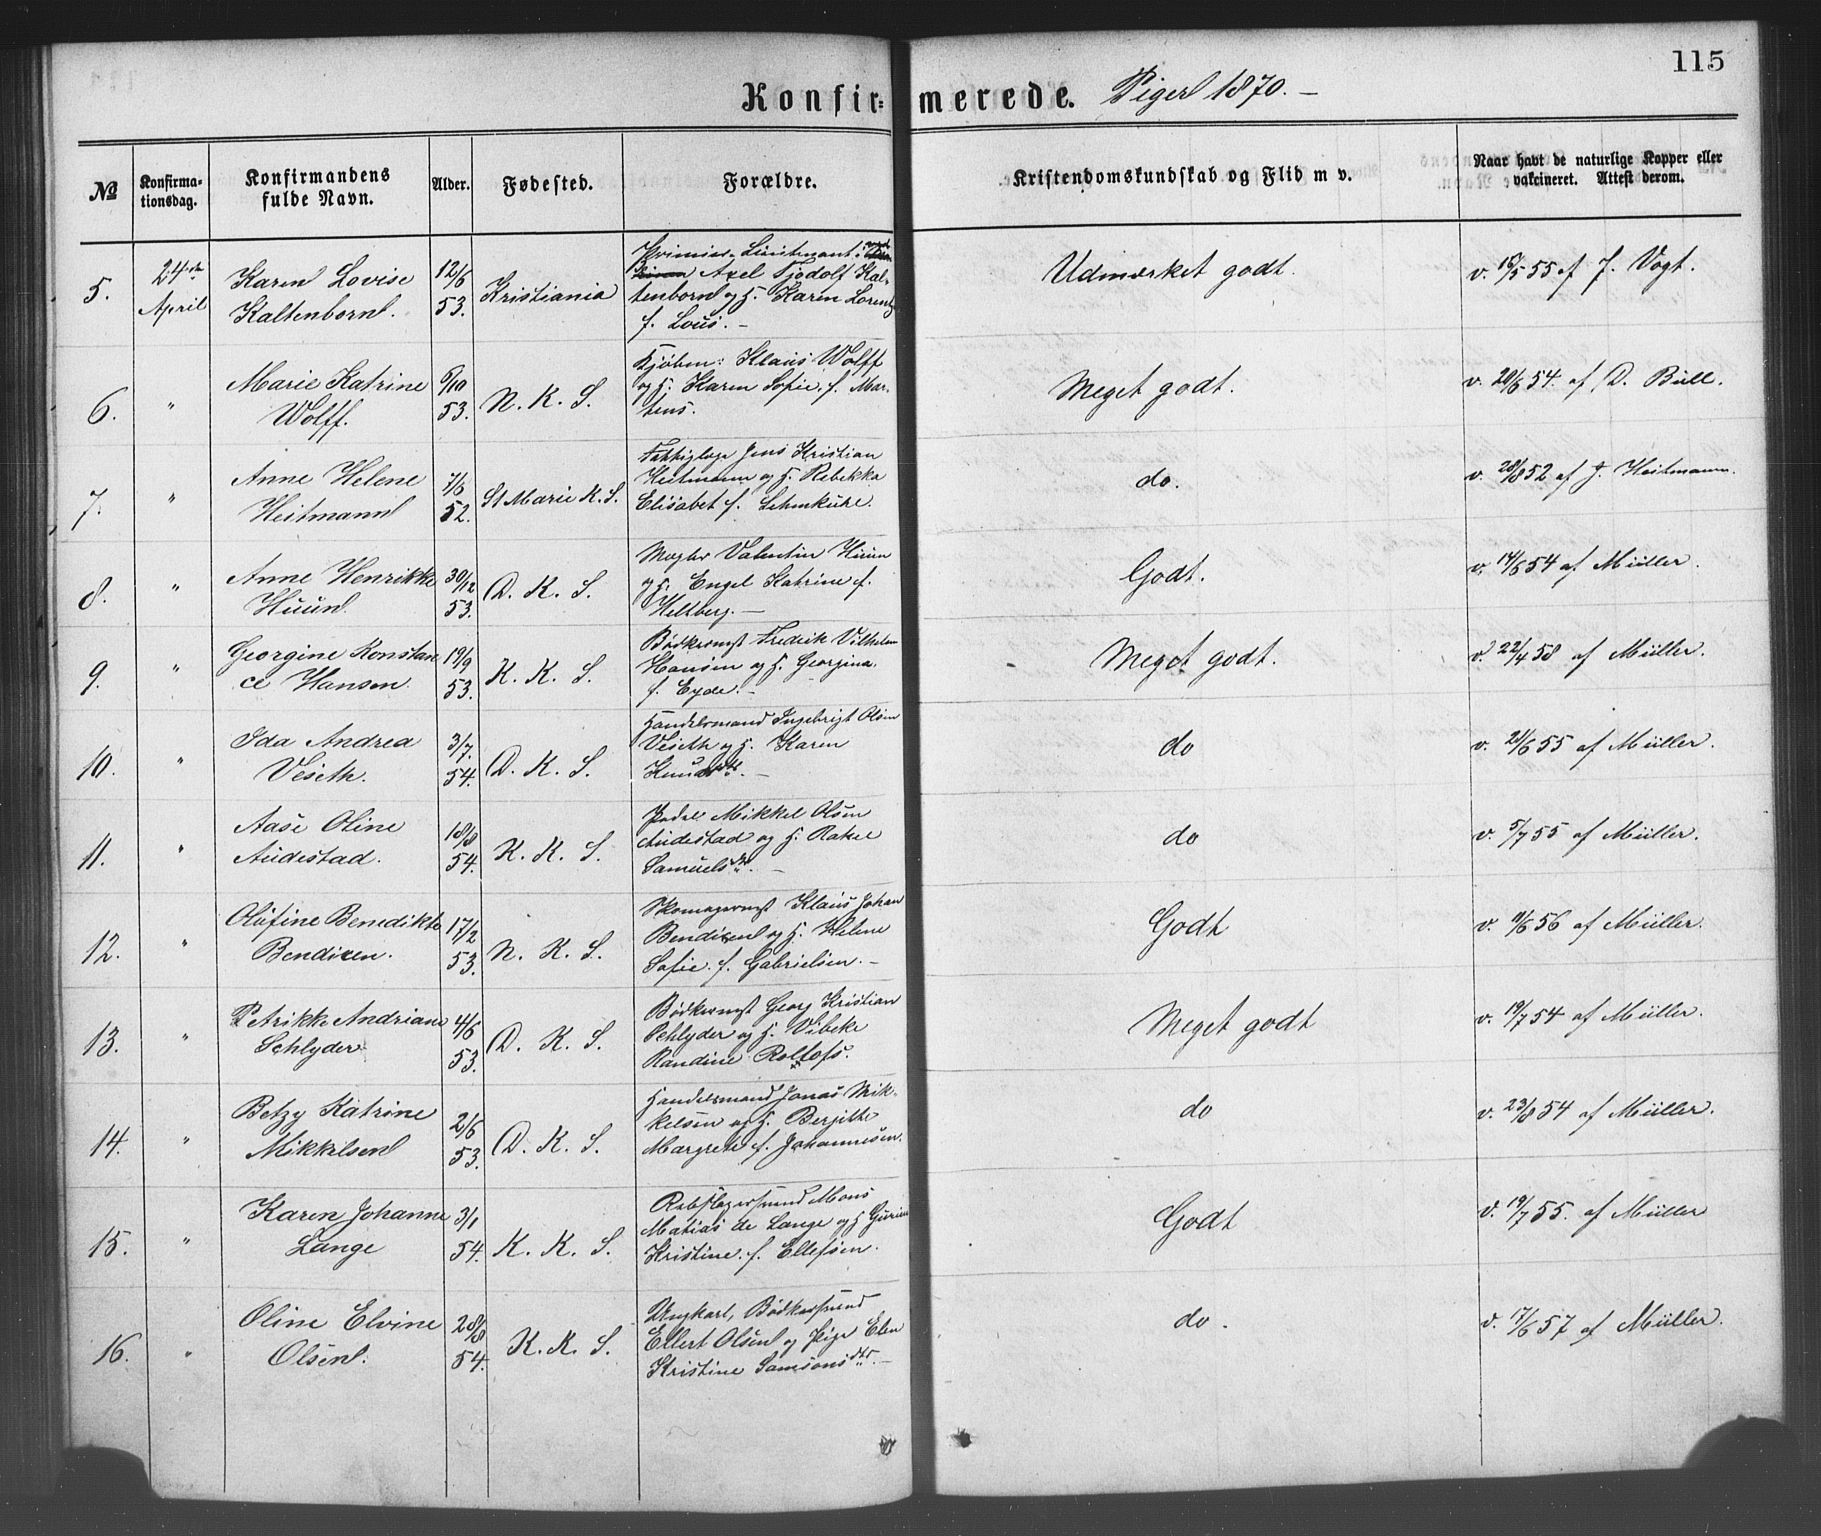 115
Konfirmerede. Piger 1870. –
№
Konfirmationsdag.
Konfirmandens fulde Navn.
Alder.
Fødested.
Forældre.
Kristendomskundskab og Flid m v.
Naar havt de naturlige Kopper eller vakcineret. Attest derom.
5.
24de April
Karen Lovise
Kaltenborn.
12/6
53.
Kristiania
Axel Tjodolf Kal-
tenborn og H. Karen Lorentz
f. Lous. –
Udmærket godt.
v. 18/5 55 af J. Vogt.
6.
"
Marie Katrine
Wolff.
6/10
53.
N. K. S.
Kjøbm: Klaus Wolff
og H. Karen Sofie, f. Mar-
tens.
Meget godt.
v. 20/6 54. af D. Bull.
7.
"
Anne Helene
Heitmann
7/6
52.
St Marie K. S.
Jens Kristian
Heitmann og H. Rebekka
Elisabet f. Lehmkuhl.
do.
v. 28/8 52 af J. Heitmann.
8.
"
Anne Henrikke
Huun.
30/12
53.
D. K. S.
Mægler Valentin Huun
og H. Engel Katrine f.
Heltberg. –
Godt.
v. 14/6 54 af Müller.
9.
"
Georgine Konstan
ce Hansen.
19/9
53.
K. K. S.
Bødkermst Fredrik Vilhelm
Hansen og H. Georgina.
f. Eyde. –
Meget godt.
v. 22/4 58 af Müller.
10.
"
Ida Andrea
Veseth.
3/7
54.
D. K. S.
Handelsmand Ingebrigt Olsen
Veseth og H. Karen
Knudsdtr. –
do
v. 21/6 55 af Müller.
11.
"
Aase Oline
Audestad.
18/8
54.
K. K. S.
Mikkel Olsen
Audestad og H. Rakel
Samuelsdtr. –
do
v. 5/7 55 af Müller.
12.
"
Olufine Benedikte
Bendixen.
17/2
53.
N. K. S.
Skomagermst Klaus Johan
Bendixen og H. Helene
Sofie. f. Gabrielsen. –
Godt
v. 11/6 56 af Müller.
13.
"
Petrikke Andriane
Schlyder
4/6
53.
D. K. S.
Bødkermst Georg Kristian
Schlyder og H. Vibeke
Randine Roltofs.
Meget godt
v. 19/7 54 af Müller.
14.
"
Betzy Katrine
Mikkelsen
2/6
53.
D. K. S.
Handelsmand Jonas Mik-
kelsen og H. Berjitte
Margrete f. Johannesen.
do
v. 23/8 54 af Müller.
15.
"
Karen Johanne
Lange
3/1
54.
K. K. S.
Rebslagersvend Mons
Matias de Lange og H Gurine
Kristine. f. Ellefsen.
Godt
v. 19/7 55. af Müller
16.
"
Oline Elvine
Olsen.
28/8
54.
K. K. S.
Ungkarl, Bødkersvend
Ellert Olsen og Pige Elen
Kristine Samsonsdtr. –
do.
v. 17/6 57 af Müller.